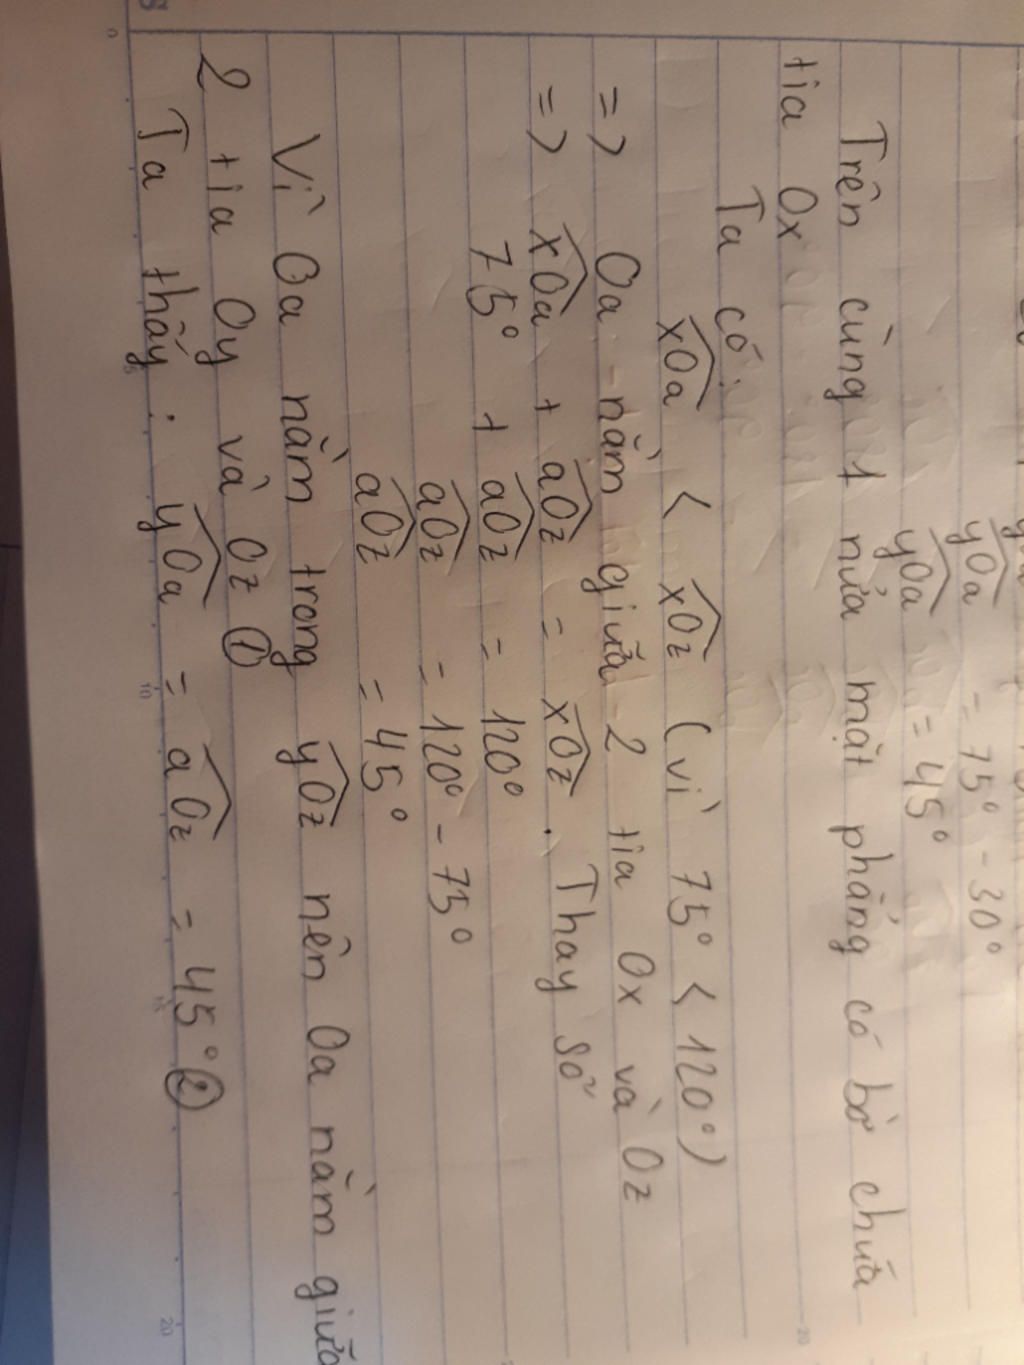 yOa = 75° - 30°
yOa = 45°
Trên cùng 1 nửa mặt phẳng có bờ chứa
tia Ox
Ta có:
xOa < xOz (vì 75° < 120°)
=> Oa nằm giữa 2 tia Ox và Oz
=> xOa + aOz = xOz. Thay số
75° + aOz = 120°
aOz = 120° - 75°
aOz = 45°
Vì Oa nằm trong yOz nên Oa nằm giữa
2 tia Oy và Oz ①
Ta thấy: yOa = aOz = 45° ②